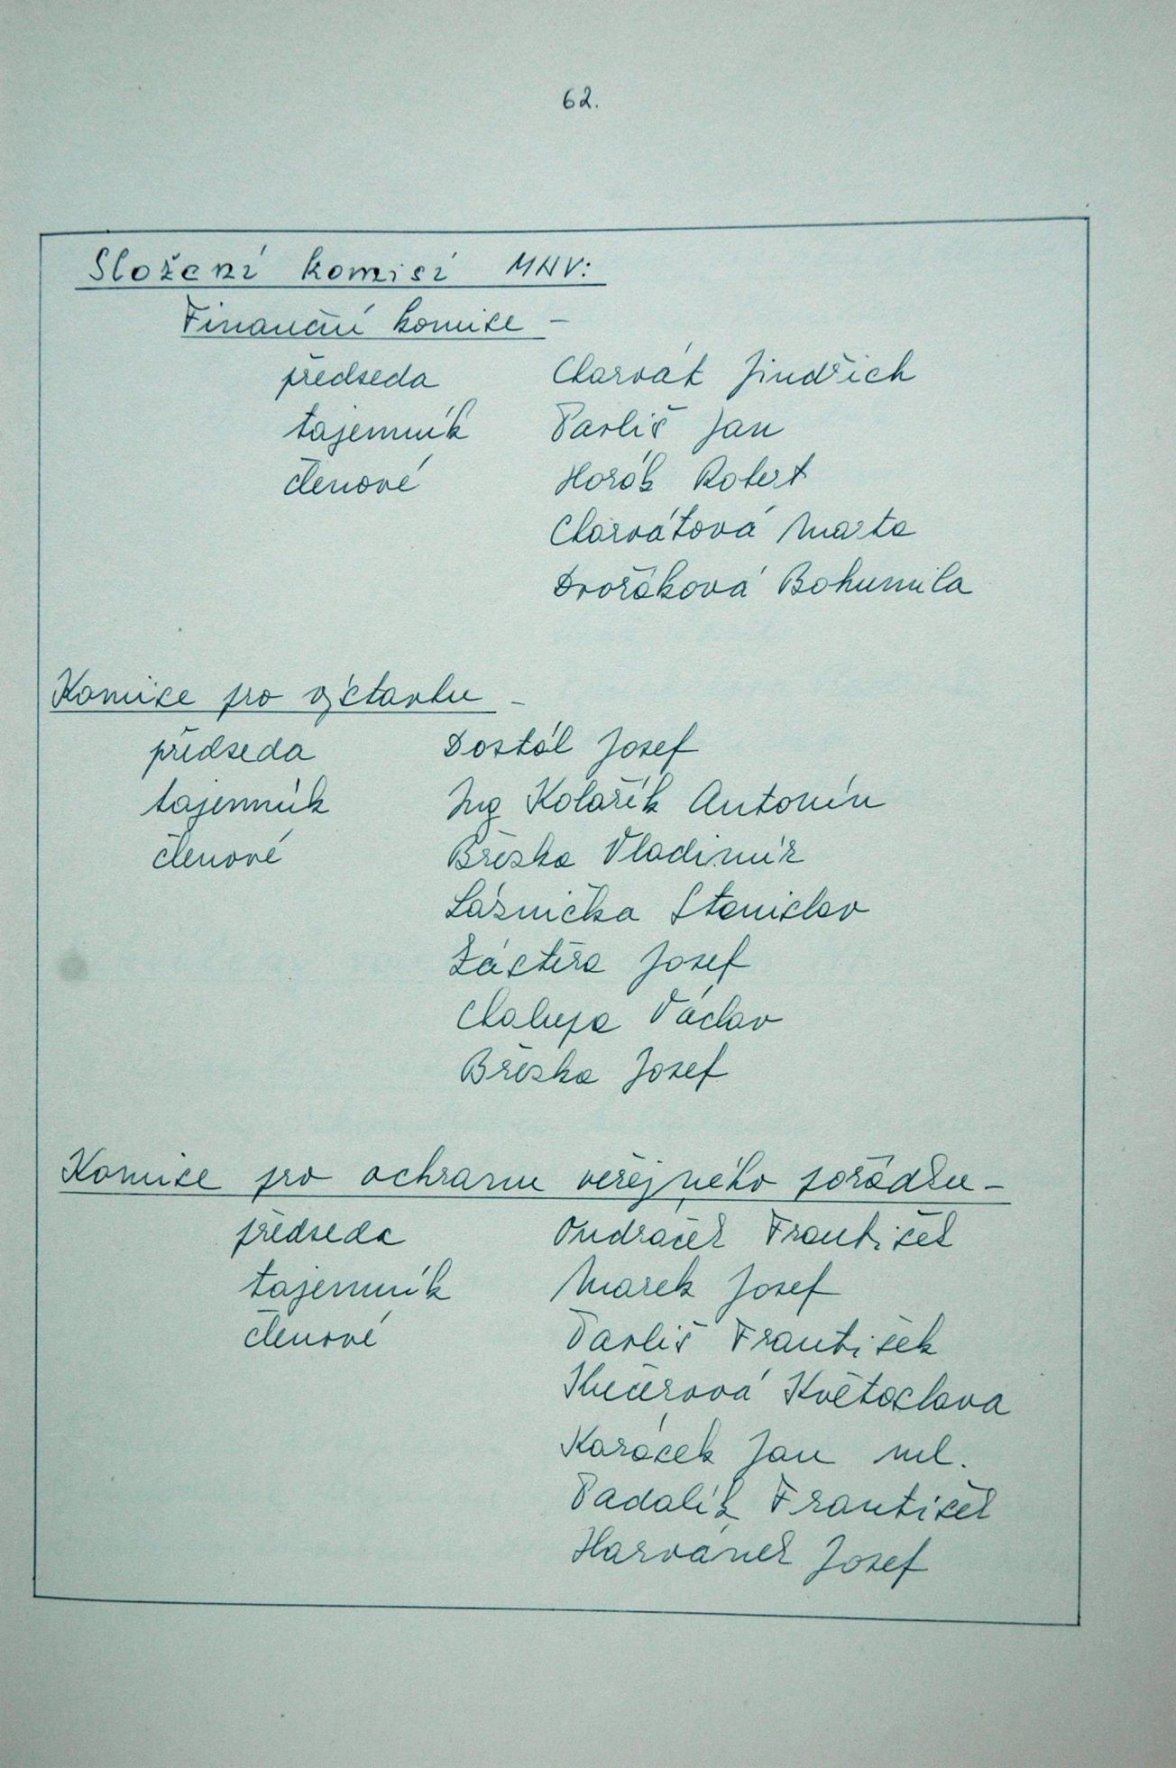 62.
Složení komisí MNV:
Finanční komise -
předseda Charvát Jindřich
tajemník Pavliš Jan
členové Horák Robert
Charvátová Marta
Dvořáková Bohumila
Komise pro výstavbu -
předseda Dostál Josef
tajemník Ing Kolařík Antonín
členové Břeska Vladimír
Láznička Stanislav
Zástěra Josef
Chalupa Václav
Břeska Josef
Komise pro ochranu veřejného pořádku -
předseda Ondráček František
tajemník Marek Josef
členové Pavliš František
Kučerová Květoslava
Karásek Jan ml.
Padalík František
Harvánek Josef